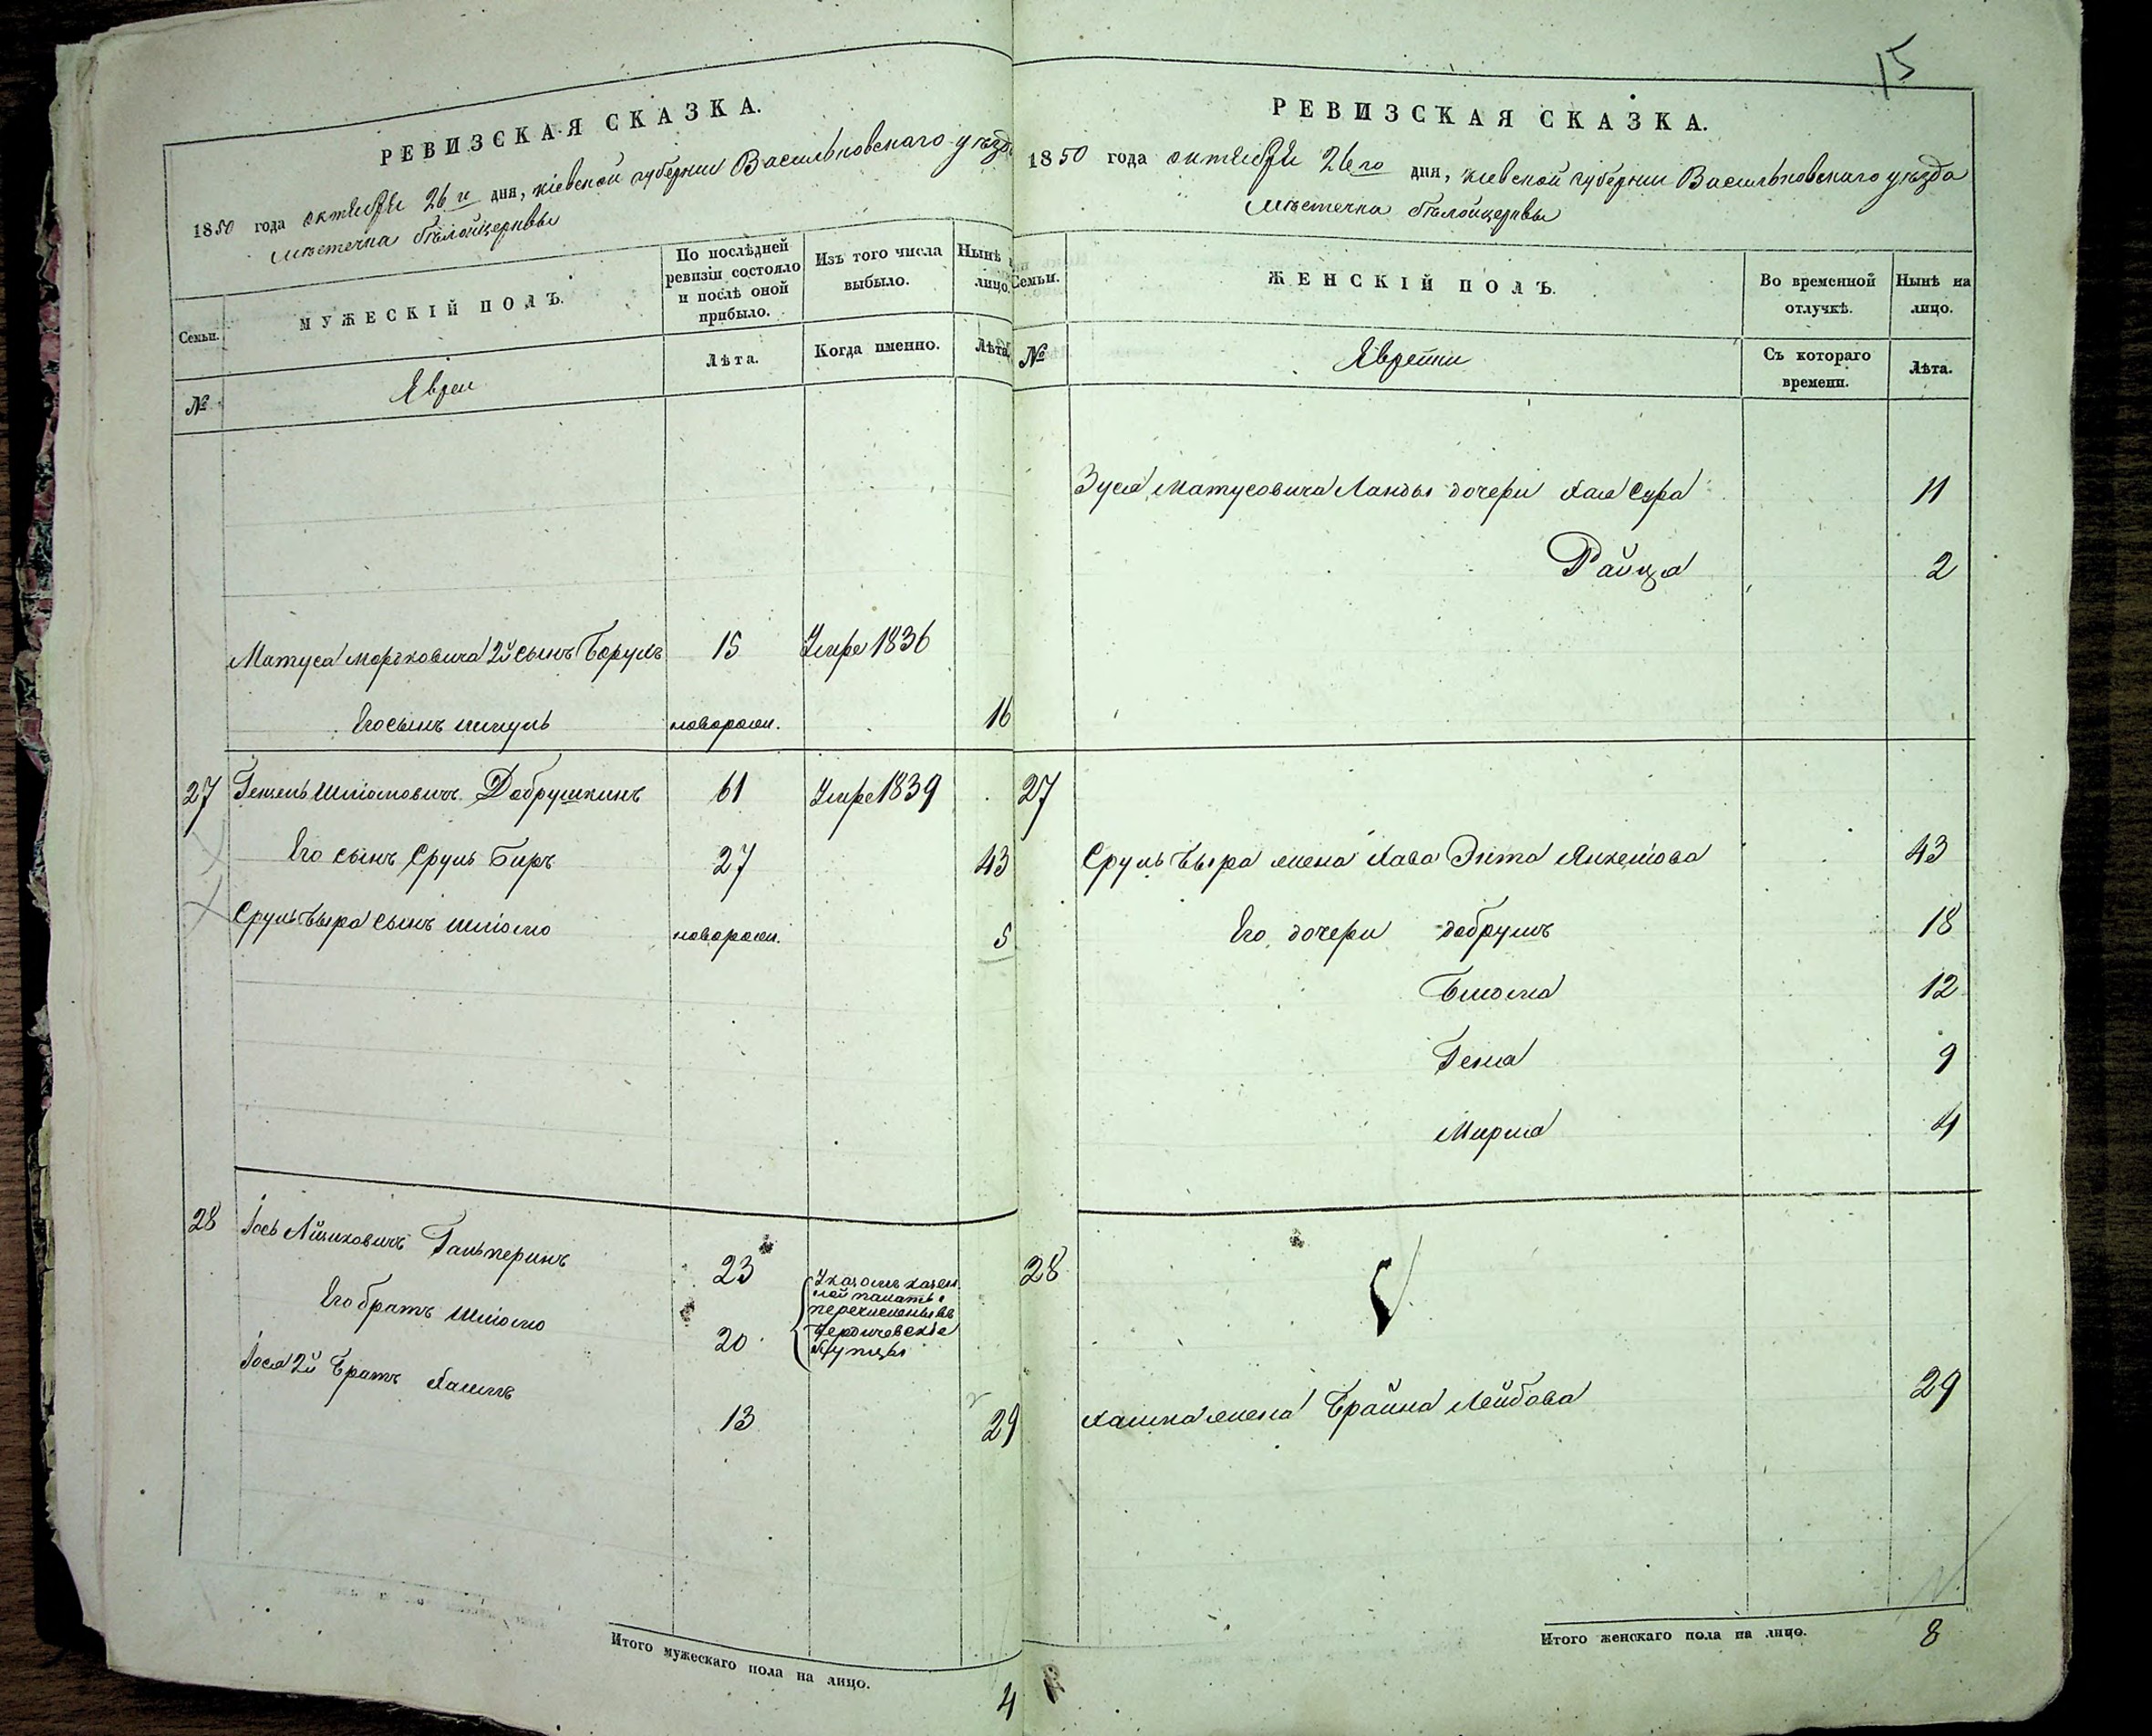 РЕВИЗСКАЯ СКАЗКА.
1850 года октября 26го дня, кіевской губерніи Васильковскаго уезда
мѣстечка бѣлойцерквы
Семьи.
МУЖЕСКІЙ ПОЛЪ.
По послѣдней ревизіи состояло и послѣ оной прибыло.
Изъ того числа выбыло.
Нынѣ
лицо.
№
Евреи
Лѣта.
Когда именно.
Лѣта
Матуса мордковича 2й сынъ Борухъ 15 Умре 1836
Его сынъ новорож. 16
27 Шліомовичъ Добрушкинъ 61 Умре 1839
Его сынъ Сруль Биръ 27 43
Сруль Быра сынъ Шліомо новорож. 5
28 Іось Айзиковичъ Гальперинъ 23
Указомъ казен
ной палаты
перечислены въ
Бердичевскіе
купцы
Его братъ Шліомо 20
Іося 2й Братъ Хаимъ 13 29
Итого мужескаго пола на лицо. 4
15
РЕВИЗСКАЯ СКАЗКА.
1850 года октября 26го дня, кіевской губерніи Васильковскаго уѣзда
мѣстечка бѣлойцерквы
Семьи.
ЖЕНСКІЙ ПОЛЪ.
Во временной отлучкѣ.
Нынѣ на лицо.
№
Еврейки
Съ котораго времени.
Лѣта.
Зуся Матусовича Ланды дочери Хая Сура 11
Райца 2
27
Сруль Быра жена Хава Энта Янкелова 43
Его дочери добрушъ 18
Блюма 12
Геня 9
Мирма 4
28
Хаима жена Брайна Лейбова 29
Итого женскаго пола на лицо. 8